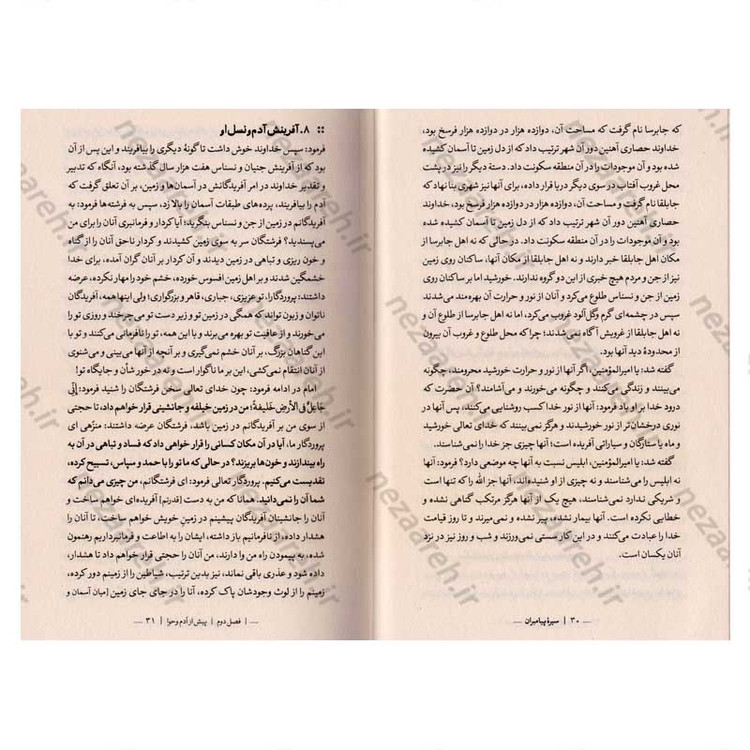 که جابرسا نام گرفت که مساحت آن، دوازده هزار در دوازده هزار فرسخ بود،
خداوند حصاری آهنین دور آن شهر ترتیب داد که از دل زمین تا آسمان کشیده
شده بود و آن موجودات را در آن منطقه سکونت داد. دستهٔ دیگر را نیز در پشت
محل غروب آفتاب در سوی دیگر دریا قرار داده، برای آنها نیز شهری بنا نهاد که
جابلقا نام گرفت و مساحت آن، دوازده هزار در دوازده هزار فرسخ بود، خداوند
حصاری آهنین دور آن شهر ترتیب داد که از دل زمین تا آسمان کشیده شده
بود و آن موجودات را در آن منطقه سکونت داد. در حالی که نه اهل جابرسا از
مکان اهل جابلقا خبر دارند و نه اهل جابلقا از مکان آنها، ساکنان روی زمین
نیز از جن و مردم هیچ خبری از این دو گروه ندارند. خورشید اما بر ساکنان روی
زمین از جن و نسناس طلوع می‌کرد و آنان از نور و حرارت آن بهره‌مند می‌شدند
سپس در چشمه‌ای گرم و گل‌آلود غروب می‌کرد، اما نه اهل جابرسا از طلوع آن و
نه اهل جابلقا از غروبش آگاه نمی‌شدند؛ چرا که محل طلوع و غروب آن بیرون
از محدودهٔ دید آنها بود.
گفته شد: یا امیرالمؤمنین، اگر آنها از نور و حرارت خورشید محرومند، چگونه
می‌بینند و زندگی می‌کنند و چگونه می‌خورند و می‌آشامند؟ آن حضرت که
درود خدا بر او باد فرمود: آنها از نور خدا کسب روشنایی می‌کنند، پس آنها در
نوری درخشان‌تر از نور خورشیدند و هرگز نمی‌بینند که خدای تعالی خورشید
و ماه یا ستارگان و سیاراتی آفریده است؛ آنها چیزی جز خدا را نمی‌شناسند.
گفته شد: یا امیرالمؤمنین، ابلیس نسبت به آنها چه موضعی دارد؟ فرمود: آنها
نه ابلیس را می‌شناسند و نه چیزی از او شنیده‌اند، آنها جز الله را که تنهاست
و شریکی ندارد نمی‌شناسند، هیچ یک از آنها هرگز مرتکب گناهی نشده و
خطایی نکرده است. آنها بیمار نشده، پیر نشده و نمی‌میرند و تا روز قیامت
خدا را عبادت می‌کنند و در این کار سستی نمی‌ورزند و شب و روز نیز در نزد
آنان یکسان است.
۳۰ | سیرهٔ پیامبران
:: ۸. آفرینش آدم و نسل او
فرمود: سپس خداوند خوش داشت تا گونهٔ دیگری را بیافریند و این پس از آن
بود که از آفرینش جنیان و نسناس هفت هزار سال گذشته بود، آنگاه که تدبیر
و تقدیر خداوند در امر آفریدگانش در آسمان‌ها و زمین، بر آن تعلق گرفت که
آدم را بیافریند، پرده‌های طبقات آسمان را بالا زد، سپس به فرشته‌ها فرمود: به
آفریدگانم در زمین از جن و نسناس بنگرید؛ آیا کردار و فرمانبری آنان را برای من
می‌پسندید؟ فرشتگان سر به سوی زمین کشیدند و کردار ناحق آنان را از گناه
و خون ریزی و تباهی در زمین دیدند و آن کردار بر آنان گران آمده، برای خدا
خشمگین شدند و بر اهل زمین افسوس خورده، خشم خود را مهار نکرده، عرضه
داشتند: پروردگارا، تو عزیزی، جباری، قاهر و بزرگواری؛ ولی اینها همه، آفریدگان
ناتوان و زبون تواند که همگی در زمین تو و زیر دست تو می‌چرخند و روزی تو را
می‌خورند و از عافیت تو بهره می‌برند و با این همه، تو را نافرمانی می‌کنند و تو با
این گناهان بزرگ، بر آنان خشم نمی‌گیری و بر آنچه از آنها می‌بینی و می‌شنوی
از آنان انتقام نمی‌کشی، این بر ما ناگوار است و نه در خور شأن و جایگاه تو!
امام در ادامه فرمود: چون خدای تعالی سخن فرشتگان را شنید فرمود: إِنِّي
جَاعِلٌ فِي الأَرْضِ خَلِيفَةً؛ من در زمین خیلفه و جانشینی قرار خواهم داد، تا حجتی
از سوی من بر آفریدگانم در زمین باشد، فرشتگان عرضه داشتند: منزّهی ای
پروردگار ما، آیا در آن مکان کسانی را قرار خواهی داد که فساد و تباهی در آن به
راه بیندازند و خون‌ها بریزند؟ در حالی که ما تو را با حمد و سپاس، تسبیح کرده،
تقدیست می‌کنیم. پروردگار تعالی فرمود: ای فرشتگانم، من چیزی می‌دانم که
شما آن را نمی‌دانید. همانا که من به دست [قدرتم] آفریده‌ای خواهم ساخت و
آنان را جانشینان آفریدگان پیشینم در زمین خویش خواهم ساخت، تا آنان را
هشدار داده، از نافرمانیم باز داشته، ایشان را به اطاعت و فرمانبرداریم رهنمون
شده، به پیمودن راه من وا دارند، من آنان را حجتی قرار خواهم داد تا هشدار،
داده شود و عذری باقی نماند، نیز بدین ترتیب، شیاطین را از زمینم دور کرده،
زمینم را از لوث وجودشان پاک کرده، آنان را در جای جای زمین [میان آسمان و
| فصل دوم | پیش از آدم و حوا | ۳۱
nezaareh.ir